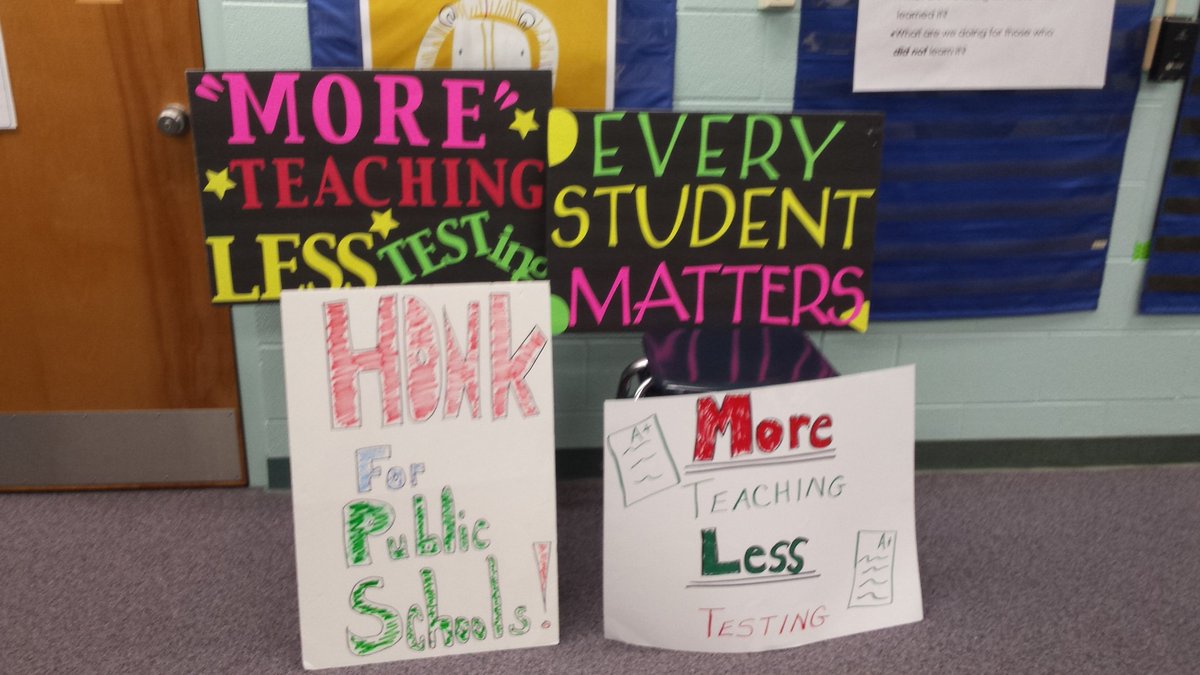 learned it?
•What are we doing for those who
did not learn it?
"MORE"
TEACHING
LESS TESTing
EVERY
STUDENT
MATTERS
HONK
FOR
Public
Schools!
A+
More
TEACHING
Less
TESTING
A+